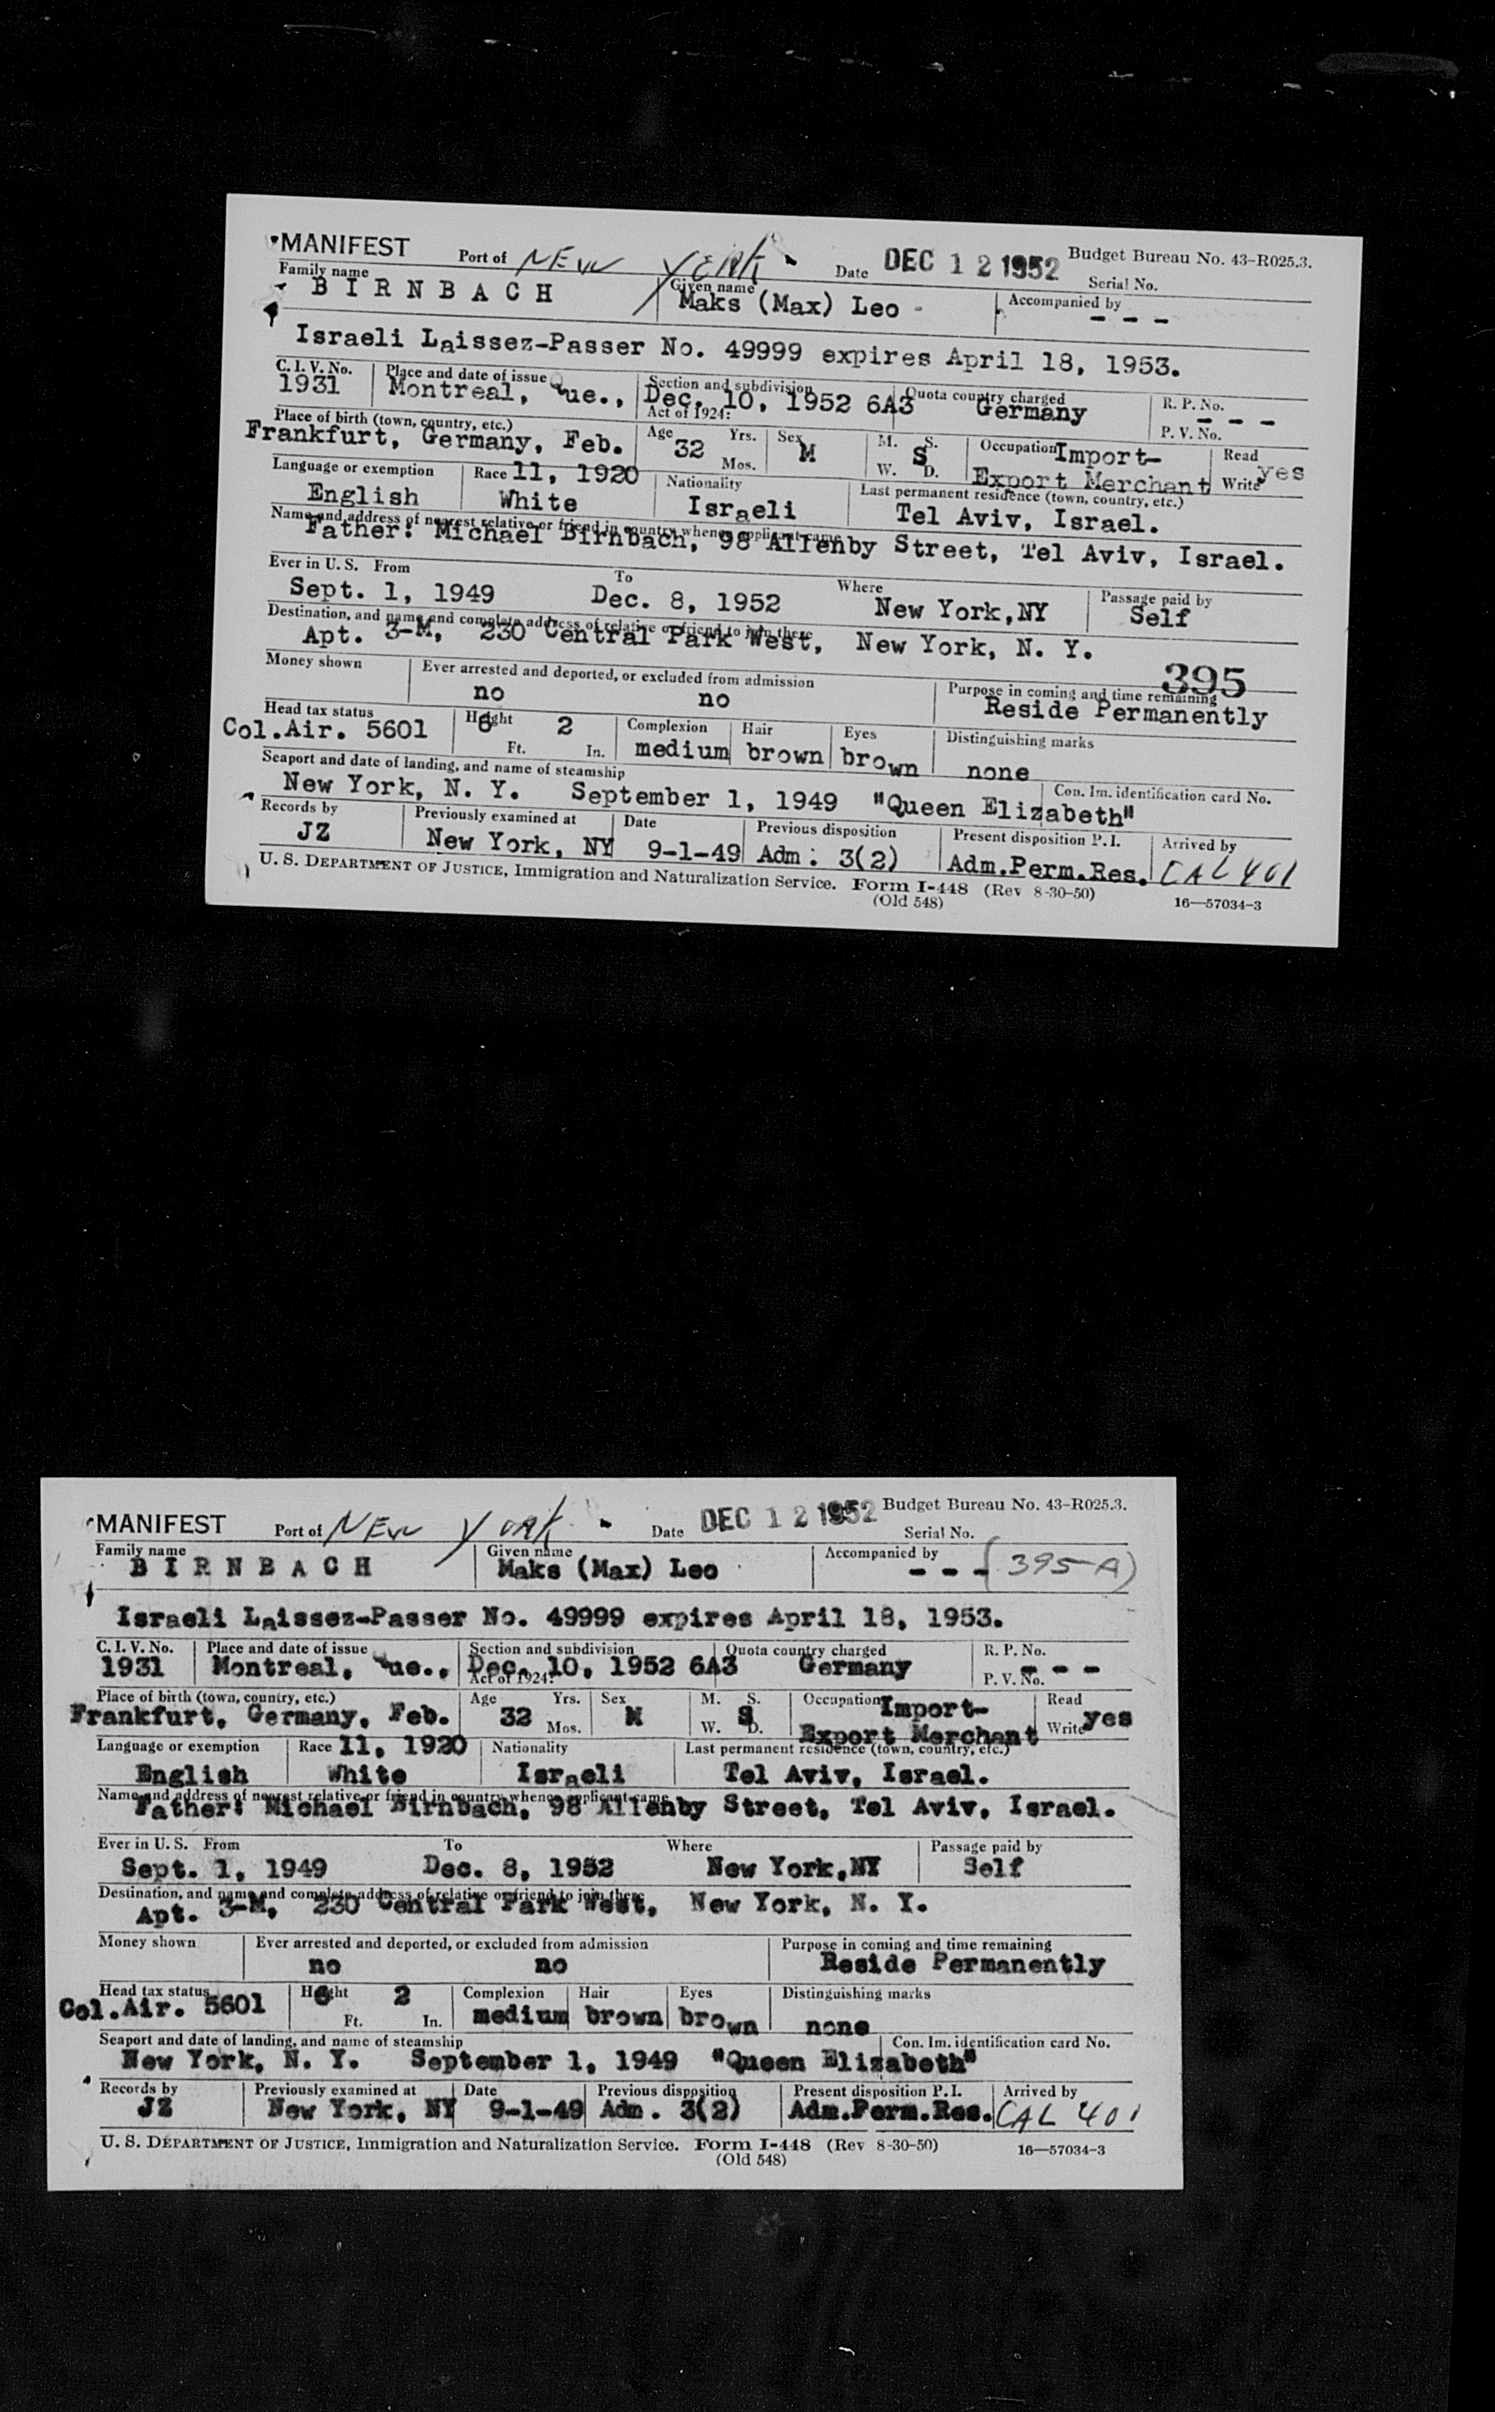 MANIFEST Port of NEW YORK Date DEC 12 1952 Budget Bureau No. 43-R025.3.
Serial No.
Family name Given name Accompanied by
BIRNBACH Maks (Max) Leo - - -
Israeli Laissez-Passer No. 49999 expires April 18, 1953.
C. I. V. No. Place and date of issue Section and subdivision Quota country charged R. P. No.
1931 Montreal, Que., Dec. 10, 1952 6A3 Germany - - -
Act of 1924: P. V. No.
Place of birth (town, country, etc.) Age Yrs. Sex M. S. Occupation Import- Read
Frankfurt, Germany, Feb. 32 Mos. M S W. D. Export Merchant Write yes
Language or exemption Race 11, 1920 Nationality Last permanent residence (town, country, etc.)
English White Israeli Tel Aviv, Israel.
Name and address of nearest relative or friend in country whence applicant came
Father: Michael Birnbach, 98 Allenby Street, Tel Aviv, Israel.
Ever in U. S. From To Where Passage paid by
Sept. 1, 1949 Dec. 8, 1952 New York,NY Self
Destination, and name and complete address of relative or friend to join there
Apt. 3-M, 230 Central Park West, New York, N. Y.
395
Money shown Ever arrested and deported, or excluded from admission Purpose in coming and time remaining
no no Reside Permanently
Head tax status Height Complexion Hair Eyes Distinguishing marks
Col.Air. 5601 6 Ft. 2 In. medium brown brown none
Seaport and date of landing, and name of steamship Con. Im. identification card No.
New York, N. Y. September 1, 1949 "Queen Elizabeth"
Records by Previously examined at Date Previous disposition Present disposition P. I. Arrived by
JZ New York, NY 9-1-49 Adm: 3(2) Adm.Perm.Res. CAL 401
U. S. DEPARTMENT OF JUSTICE, Immigration and Naturalization Service. Form I-448 (Rev 8-30-50) 16—57034-3
(Old 548)
MANIFEST Port of NEW YORK Date DEC 12 1952 Budget Bureau No. 43-R025.3.
Serial No.
Family name Given name Accompanied by
BIRNBACH Maks (Max) Leo - - - (395-A)
Israeli Laissez-Passer No. 49999 expires April 18, 1953.
C. I. V. No. Place and date of issue Section and subdivision Quota country charged R. P. No.
1931 Montreal, Que., Dec. 10, 1952 6A3 Germany - - -
Act of 1924: P. V. No.
Place of birth (town, country, etc.) Age Yrs. Sex M. S. Occupation Import- Read
Frankfurt, Germany, Feb. 32 Mos. M S W. D. Export Merchant Write yes
Language or exemption Race 11, 1920 Nationality Last permanent residence (town, country, etc.)
English White Israeli Tel Aviv, Israel.
Name and address of nearest relative or friend in country whence applicant came
Father: Michael Birnbach, 98 Allenby Street, Tel Aviv, Israel.
Ever in U. S. From To Where Passage paid by
Sept. 1, 1949 Dec. 8, 1952 New York,NY Self
Destination, and name and complete address of relative or friend to join there
Apt. 3-M, 230 Central Park West, New York, N. Y.
Money shown Ever arrested and deported, or excluded from admission Purpose in coming and time remaining
no no Reside Permanently
Head tax status Height Complexion Hair Eyes Distinguishing marks
Col.Air. 5601 6 Ft. 2 In. medium brown brown none
Seaport and date of landing, and name of steamship Con. Im. identification card No.
New York, N. Y. September 1, 1949 "Queen Elizabeth"
Records by Previously examined at Date Previous disposition Present disposition P. I. Arrived by
JZ New York, NY 9-1-49 Adm. 3(2) Adm.Perm.Res. CAL 401
U. S. DEPARTMENT OF JUSTICE, Immigration and Naturalization Service. Form I-448 (Rev 8-30-50) 16—57034-3
(Old 548)